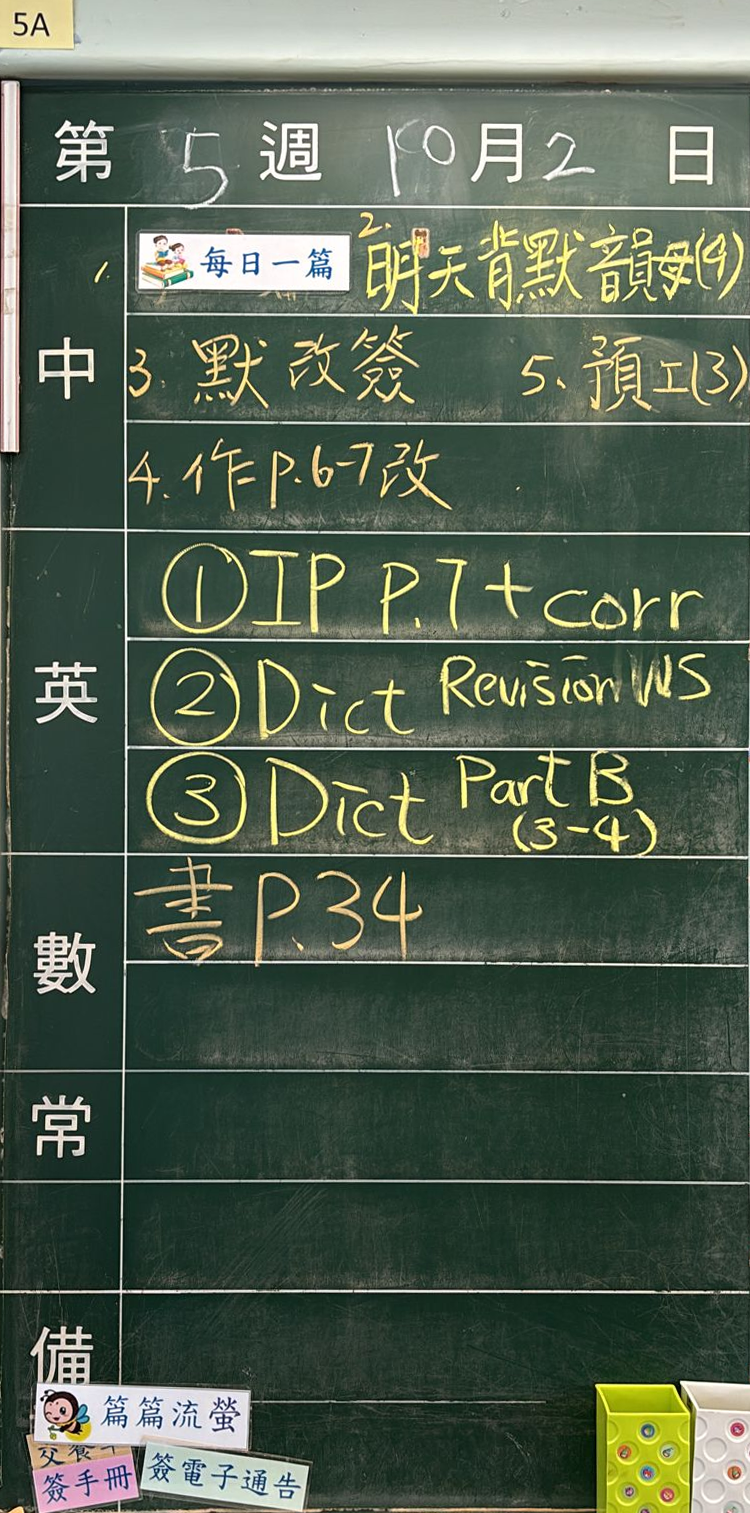 5A
第 5 週 10 月 2 日
中
1. 每日一篇 2. 明天背默韻母(4)
3. 默改簽 5. 預工(3)
4. 作P.6-7改
英
① IP P.7 + corr
② Dict Revision WS
③ Dict Part B (3-4)
數
書P.34
常
備
篇篇流螢
簽手冊
簽電子通告